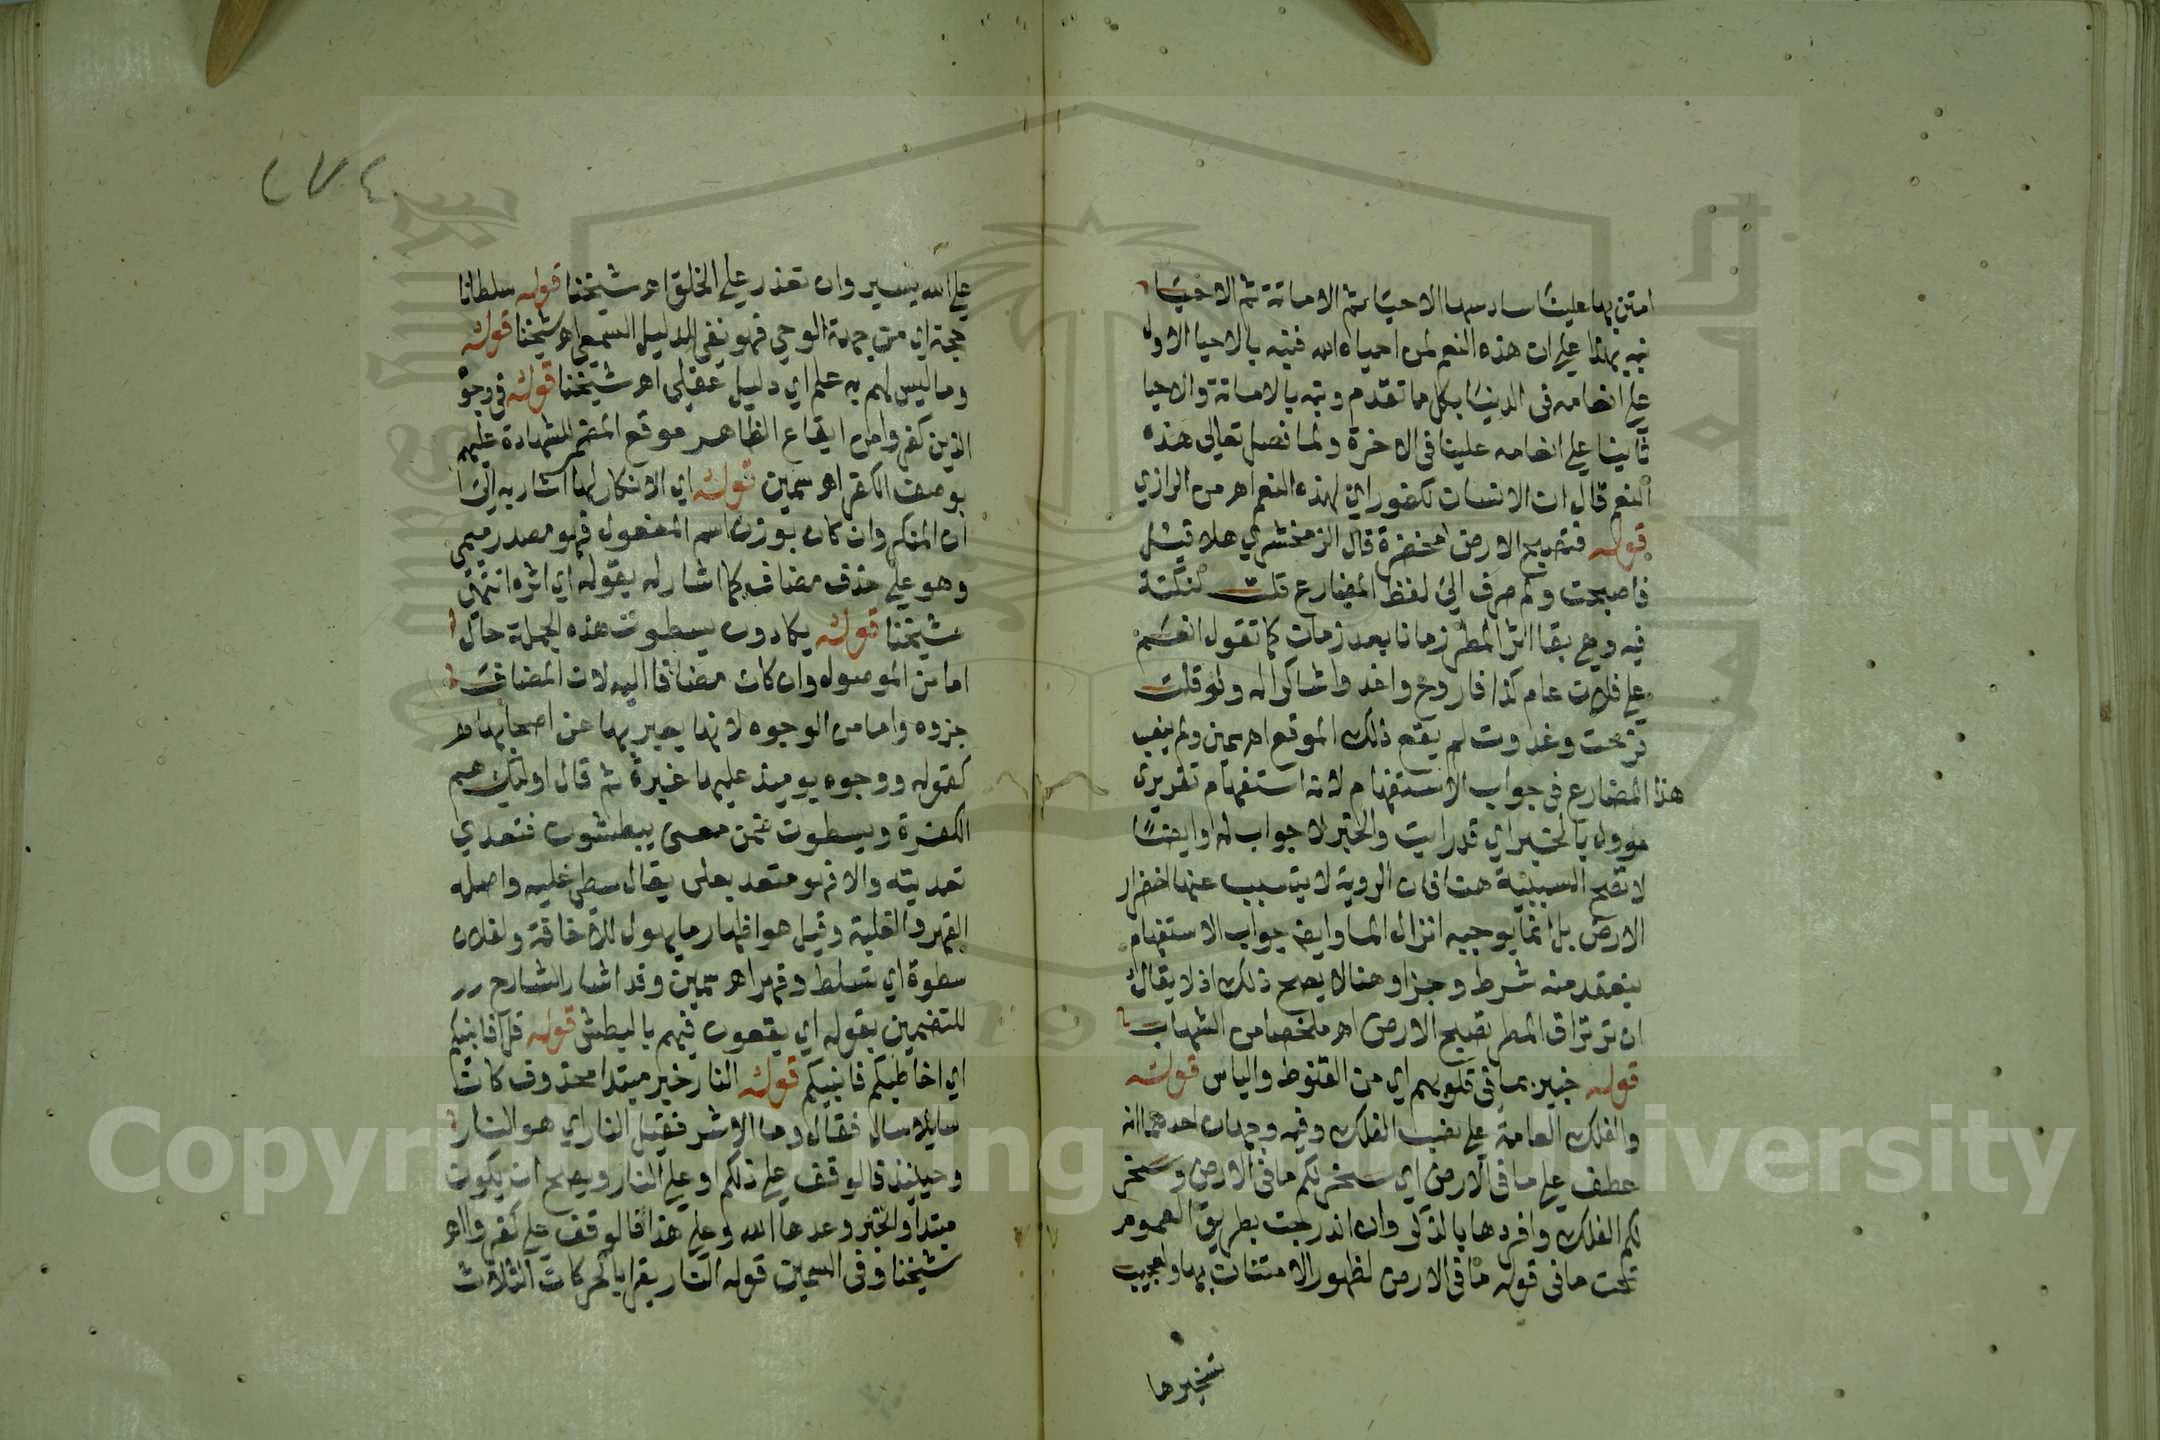 امتن بها علينا سادسها الاحيا ثم الاماتة ثم الاحيا
نبه بهذا على ان هذه النعم لمن احياه الله فنبه بالاحيا الاول
على انعامه فى الدنيا بكل ما تقدم ونبه بالاماتة والاحيا
ثانيا على انعامه علينا فى الاخرة ولما فصل تعالى هذه
النعم قال ان الانسان لكفور اي لهذه النعم اهـ من الرازي
قوله فتصبح الارض مخضرة قال الزمخشري هلا قيل
فاصبحت ولم صرف الى لفظ المضارع قلت لنكتة
فيه وهي بقا اثر المطر زمانا بعد زمان كما تقول انعم
على فلان عام كذا فاروح واغد واشاكرا له ولو قلت
فرحت وغدوت لم يقع ذلك الموقع اهـ سمين ولم ينصب
هذا المضارع فى جواب الاستفهام لانه استفهام تقريرى
موول بالخبر اي قد رايت والخبر لا جواب له وايضا
لا تصح السببية هنا فان الروية لا يتسبب عنها اخضرار
الارض بل انما يوجبه انزال الما وايض جواب الاستفهام
ينعقد منه شرط وجزا وهنا لا يصح ذلك اذ لا يقال
ان تر نزال المطر تصبح الارض اهـ ملخصا من الشهاب
قوله خبير بما فى قلوبهم اي من القنوط والياس قوله
والفلك العامة على نصب الفلك وفيه وجهان احدهما انه
عطف على ما فى الارض اي سخر لكم ما فى الارض وسخر
لكم الفلك وافردها بالذكر وان اندرجت بطريق العموم
تحت ما فى قوله ما فى الارض لظهور الامتنان بها ولعجيب
تسخيرها
٢٧٤
على الله يسير وان تعذر على الخلق اهـ شيخنا قوله سلطانا
حجة اي من جهة الوحي فهو نفى الدليل السمعي اهـ شيخنا قوله
وما ليس لهم به علم اي دليل عقلى اهـ شيخنا قوله فى وجوه
الذين كفروا من ايقاع الظاهر موقع المضمر للشهادة عليهم
بوصف الكفر اهـ سمين قوله اي الانكار لها اشار به الى
ان المنكر وان كان بوزن اسم المفعول فهو مصدر ميمى
وهو على حذف مضاف كما اشار له بقوله اي اثره انتهى
شيخنا قوله يكادون يسطون هذه الجملة حال
اما من الموصول وان كان مضافا اليه لان المضاف
جزوه واما من الوجوه لانها يعبر بها عن اصحابها
كقوله ووجوه يوميذ عليها غبرة ثم قال اوليك هم
الكفرة ويسطون ضمن معنى يبطشون فتعدي
تعديته والا فهو متعد بعلى يقال سطى عليه واصله
القهر والغلبة وقيل هو اظهار ما يهول للاخافة ولفلان
سطوة اي تسلط وقهر اهـ سمين وقد اشار الشارح
للتضمين بقوله اي يقعون فيهم بالبطش قوله قل افانبيكم
اي اخاطبكم فانبيكم قوله النار خبر مبتدا محذوف كان
سايلا سال فقال وما الاشر فقيل النار اي هو النار
وحينئذ فالوقف على ذلكم او على النار ويصح ان يكون
مبتدا والخبر وعدها الله وعلى هذا فالوقف على كفروا اهـ
شيخنا وفى السمين قوله النار يقرا بالحركات الثلاث
Copyright © King Saud University